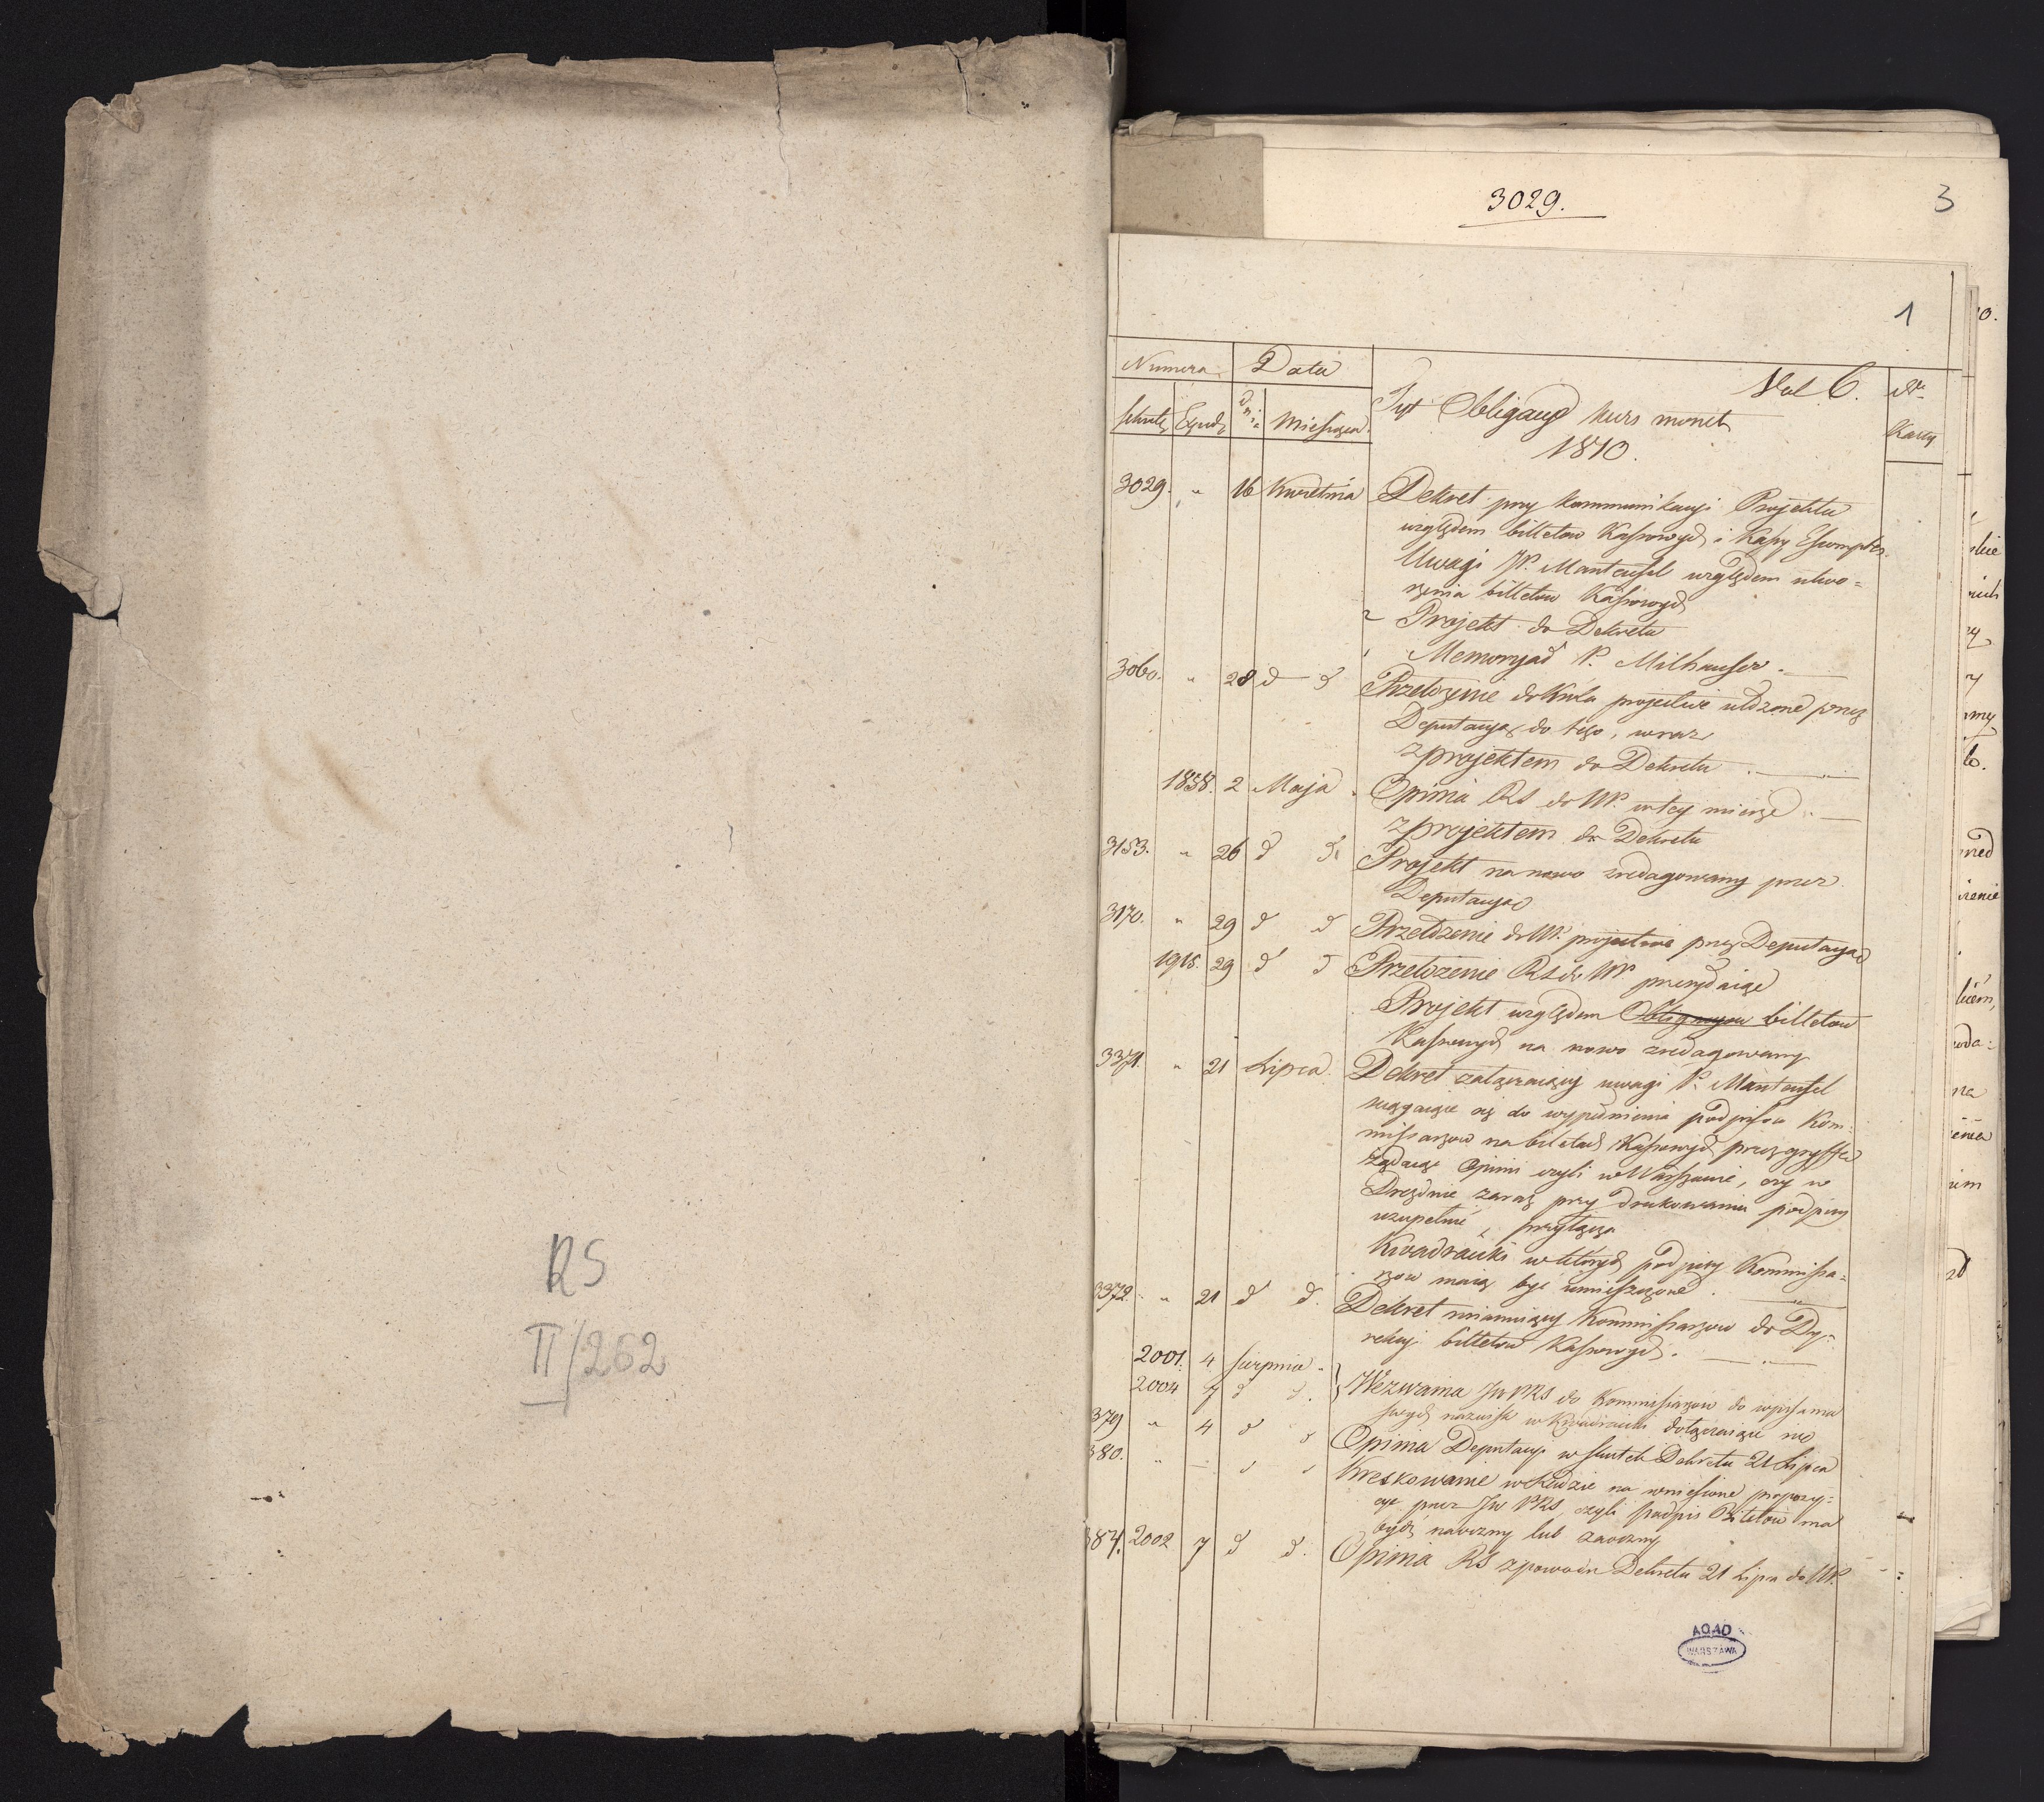 RS
II/262
3029.
3
1
Numera Data Vol. C. Nr
dnia Miesiąca Tyt Obligacyi kurs monet Karty
1810.
3029. " 16 Kwietnia Dekret przy kommunikacyi Projektu
względem billetow Kassowych i Kassy
Uwagi JP. Manteufel względem utwo=
rzenia billetow Kassowych
2 Projekt do Dekretu
Memoryał P. Milhauser.
3060. " 28 d d Przełożenie do Króla przez
Deputacyą do tego, wraz
z projektem do Dekretu
1858. 2 Maja Opinia RS do w tey mierze
z projektem do Dekretu
3153. " 26 d d Projekt na nowo zredagowany przez
Deputacyą
3170. " 29 d d Przełożenie do przez Deputacyą
1915. 29 d d Przełożenie RS do
Projekt względem Obligacyow billetow
Kassowych na nowo zredagowany
3371. " 21 Lipca Dekret załączaiący uwagi P. Manteufel
ściągaiące się do wypełnienia podpisow Kom=
missarzow na biletach Kassowych przez gryffę
żądaiąc Opinii czyli w Warszawie, czy w
Dreznie zaraz przy drukowaniu podpisy
uzupełnić, przyłącza
Kwadraciki w których podpisy Kommissa=
rzow maią być umieszczone.
3372. " 21 d d. Dekret mianuiący Kommissarzow do Dy=
rekcyi billetow Kassowych.
2001. 4 Sierpnia
2004 7 d d. Wezwania JW PRS do Kommissarzow do wpisania
swych nazwisk w Kwadraciki dołączaiąc
379 " 4 d d Opinia Deputacyi w skutek Dekretu 21 Lipca
380. " - d d Kreskowanie w Radzie na wniesione propozy=
cye przez JW PRS, czyli podpis Biletow ma
bydź naoczny lub zaoczny
387. 2002 7 d d. Opinia RS z powodu Dekretu 21 Lipca do
AGAD
WARSZAWA